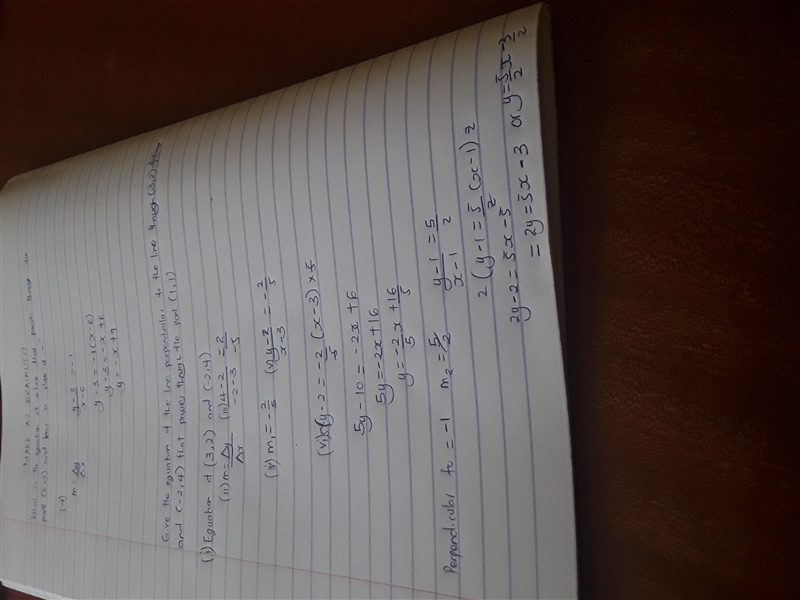 What is the equation of a line that passes through the
point (6,3) and has a slope of -1
m = Δy/Δx (y-3)/(x-6) = -1
y-3 = -1(x-6)
y-3 = -x+6
y = -x+9
Give the equation of the line perpendicular to the line through (3,2)
and (-2,4) that passes through the point (1,1)
(i) Equation of (3,2) and (-2,4)
(ii) m = Δy/Δx (iii) (4-2)/(-2-3) = 2/-5
(iv) m₁ = -2/5 (v) (y-2)/(x-3) = -2/5
(vi) 5(y-2 = -2/5 (x-3) × 5
5y-10 = -2x+6
5y = -2x+16
y = -2/5 x + 16/5
Perpendicular to = -1 m₂ = 5/2 (y-1)/(x-1) = 5/2
2(y-1 = 5/2 (x-1) 2
2y-2 = 5x-5
= 2y = 5x-3 or y = 5/2 x - 3/2